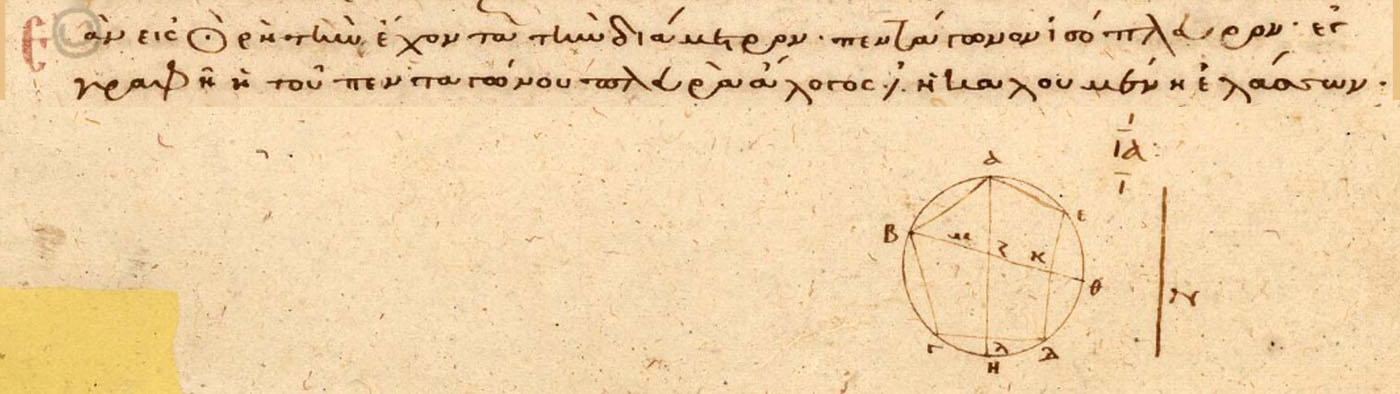 Ἐὰν εἰς ☉ ῥητὴν ἔχοντα τὴν διάμετρον· πεντάγωνον ἰσόπλευρον· ἐγ
γραφῆ ἡ τοῦ πενταγώνου πλευρὰ ἄλογος ἡ καλουμένη ἐλάσσων·
ια
Α
Β
Ε
Μ
Ζ
Κ
Θ
Ν
Γ
Λ
Δ
Η